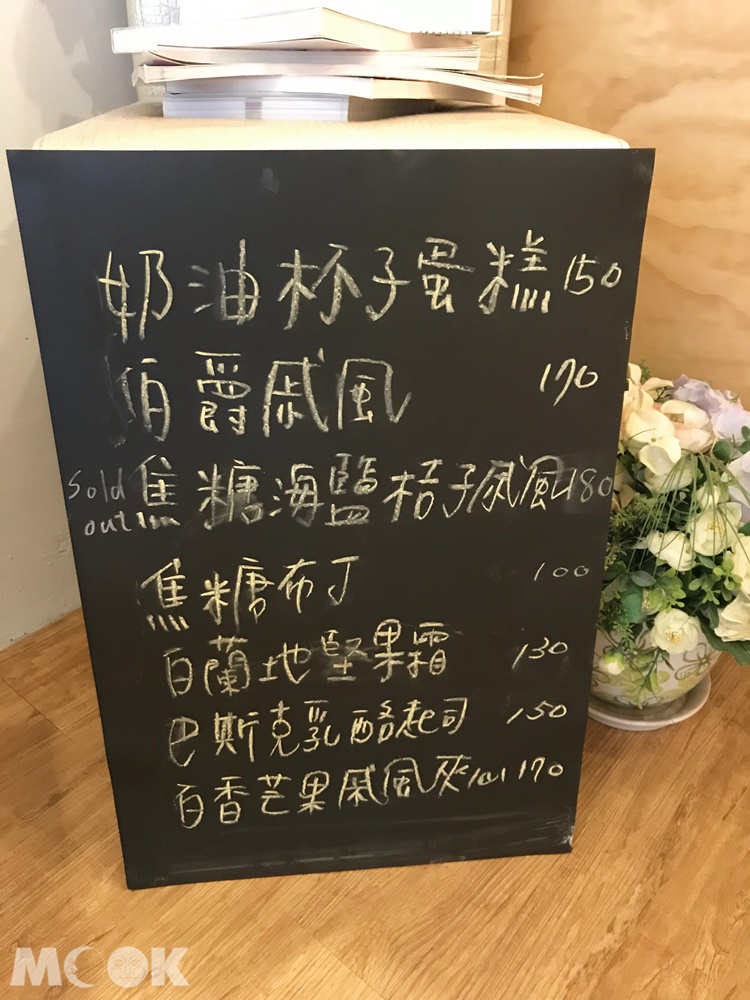 奶油杯子蛋糕 150
伯爵戚風 170
Sold out 焦糖海鹽桔子戚風 180
焦糖布丁 100
百蘭地堅果霜 130
巴斯克乳酪起司 150
百香芒果戚風 170
MOOK